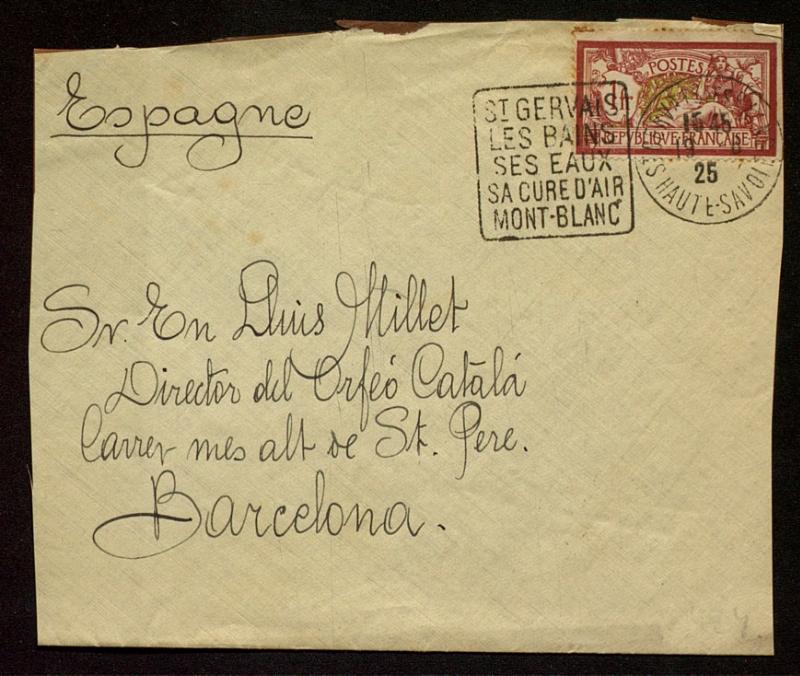 Espagne
POSTES
1F
REPUBLIQUE FRANÇAISE
ST GERVAIS
LES BAINS
SES EAUX
SA CURE D'AIR
MONT-BLANC
15 45
19
25
HAUTE-SAVOIE
Sr. En Lluis Millet
Director del Orfeó Catalá
Carrer mes alt de St. Pere.
Barcelona.